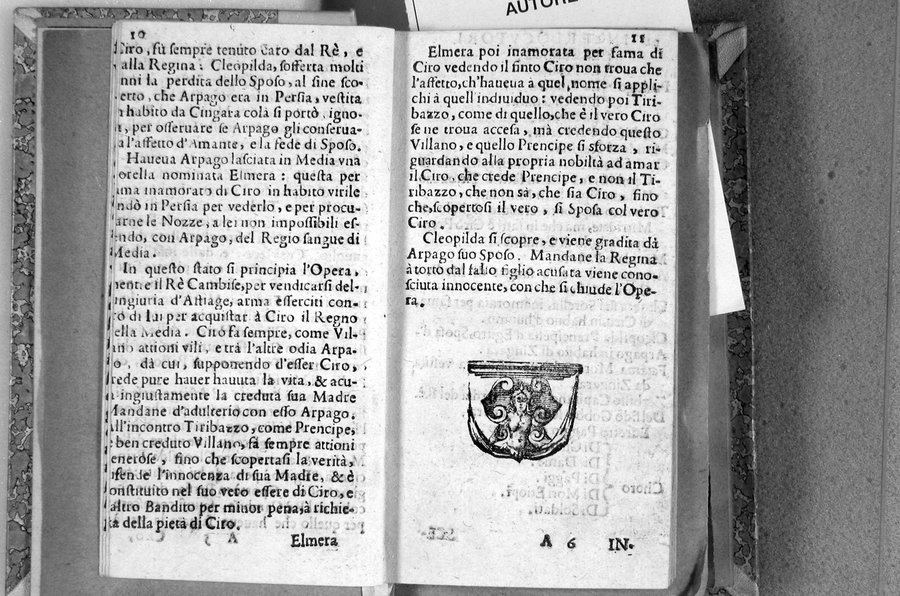 AUTORE
10
Ciro, fù sempre tenuto caro dal Rè, e
alla Regina: Cleopilda, sofferta molti
nni la perdita dello Sposo, al fine sco-
erto, che Arpago era in Persia, vestita
habito da Cingara colà si portò, igno-
, per osseruare se Arpago gli conserua-
a l'affetto d'Amante, e la fede di Sposo.
Haueua Arpago lasciata in Media vna
orella nominata Elmera: questa per
ama inamorata di Ciro in habito virile
ndò in Persia per vederlo, e per procu-
arne le Nozze, a lei non impossibili es-
endo, con Arpago, del Regio sangue di
Media.
In questo stato si principia l'Opera,
mentre il Rè Cambise, per vendicarsi del-
ingiuria d'Astiage, arma esserciti con-
ro di lui per acquistar à Ciro il Regno
ella Media. Ciro fa sempre, come Vil-
ano attioni vili, e trà l'altre odia Arpa-
o, da cui, supponendo d'esser Ciro,
rede pure hauer hauuta la vita, & acu-
ingiustamente la creduta sua Madre
Mandane d'adulterio con esso Arpago.
ll'incontro Tiribazzo, come Prencipe,
ben creduto Villano, fà sempre attioni
enerose, fino che scopertasi la verità,
l'innocenza di sua Madre, & è
onstituito nel suo vero essere di Ciro, e
altro Bandito per minor pena, à richie-
ta della pietà di Ciro.
A 5 Elmera
11
Elmera poi inamorata per fama di
Ciro vedendo il finto Ciro non troua che
l'affetto, ch'haueua à quel nome si appli-
chi à quell'indiuiduo: vedendo poi Tiri-
bazzo, come di quello, che è il vero Ciro
se ne troua accesa, mà credendo questo
Villano, e quello Prencipe si sforza, ri-
guardando alla propria nobiltà ad amar
il Ciro, che crede Prencipe, e non il Ti-
ribazzo, che non sà, che sia Ciro, fino
che, scopertosi il vero, si Sposa col vero
Ciro.
Cleopilda si scopre, e viene gradita dà
Arpago suo Sposo. Mandane la Regina
à torto dal falso figlio acusata viene cono-
sciuta innocente, con che si chiude l'Ope-
ra.
A 6 IN-